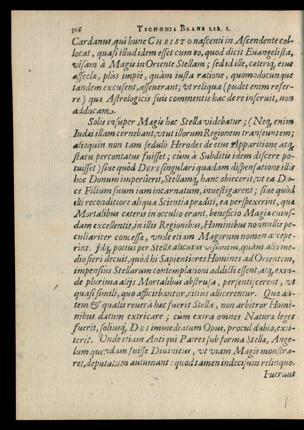 316 TYCHONIS BRAHE LIB. I.
Cardanus, qui hunc CHRISTO nascenti in Ascendente col-
locat, quasi illud idem esset cum eo, quod dicit Euangelista,
visam à Magis in Orente Stellam; sed ille, cæteriq, eius
asseclæ, plus impiè, quàm iusta ratione, quomodocunque
tandem excusent, asseuerant; vt reliqua (pudet enim refer-
re) quæ Astrologicis suis commentis hac de re inseruit, non
adducam.
Solis insuper Magis hæc Stella videbatur; (Neq, enim
Iudæi illam cernebant, vt ut illorum Regionem transeuntem;
alioquin non tam sedulo Herodes de eius apparitione atq,
statu percontatus fuisset; cùm à Subditis idem discere po-
tuisset) siue quòd DEVS singulari quadam dispensatione illis
hoc Donum imperiret, Stellamq, hanc obijceret, vt ea Du-
ce Filium suum iam incarnatum, inuestigarent; siue quòd
illi reconditiore aliqua Scientia præditi, ea perspexerint, quæ
Mortalibus cæteris in occulto erant, beneficio Magiæ cuius-
dam excellentis, in illis Regionibus, Hominibus nonnullis pe-
culiariter concessæ, vnde etiam Magorum nomen accepe-
rint. Idq, potius per Stellæ alicuius visionem, quàm alio me-
dio fieri decuit, quòd hi Sapientiores Homines ad Orientem,
impensius Stellarum contemplationi addicti essent, atq, exin-
de plurima alijs Mortalibus abstrusa, perspicerent, vt
quasi simili, quo afficiebantur, citius allicerentur. Quæ au-
tem & qualis reuerà hæc fuerit Stella, non arbitror Homi-
nibus datum extricare; cùm extra omnes Naturæ leges
fuerit, soliusq, DEI immediatum Opus, procul dubio, exti-
terit. Vnde etiam Antiqui Patres sub forma Stellæ, Ange-
lum quendam fuisse Diuinitus, vt viam Magis monstra-
ret, deputatum autumant: quod tamen indecisum relinquo.
Fuerunt